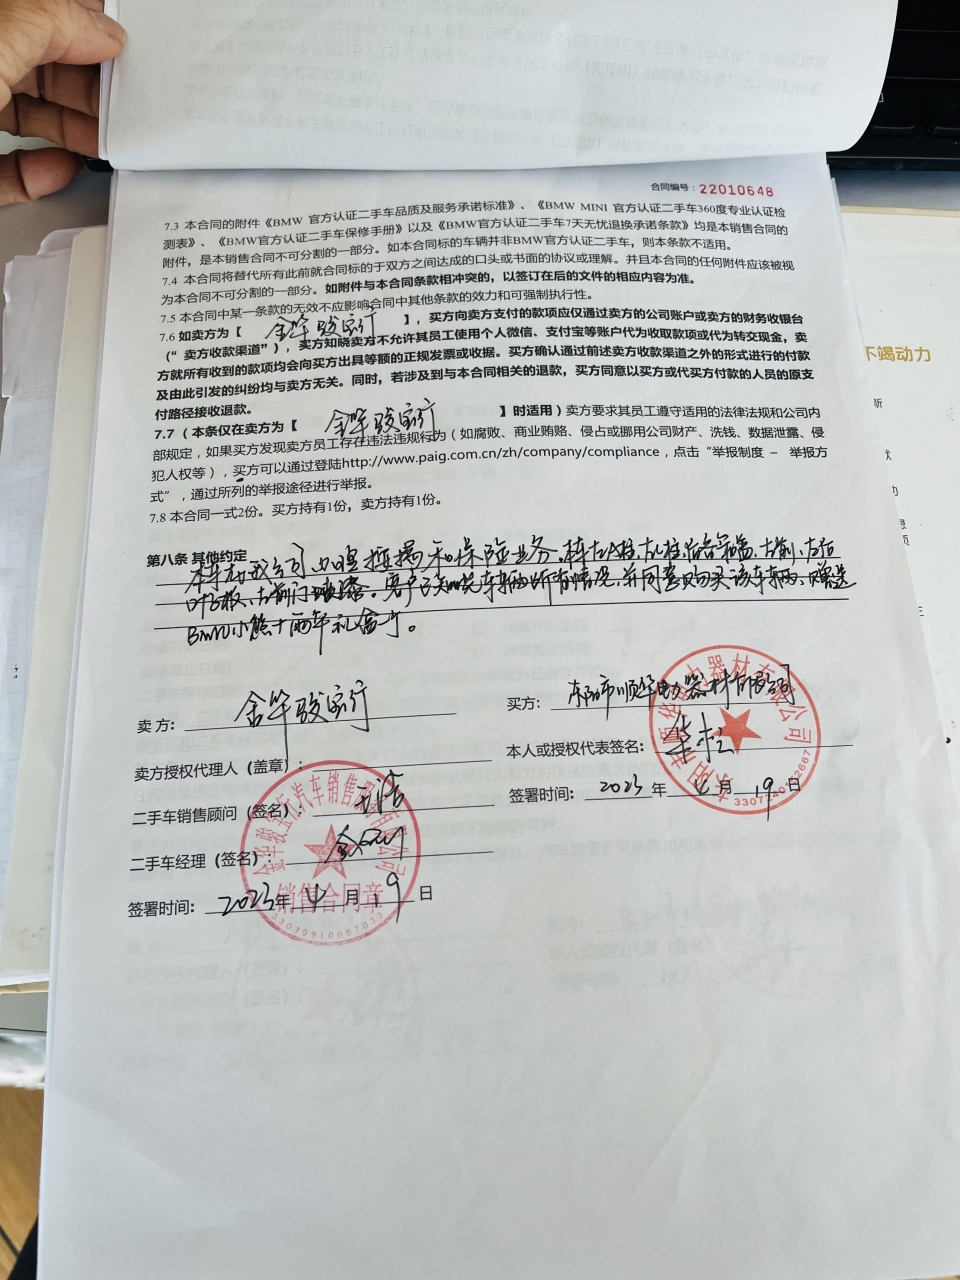 合同编号：22010648
7.3 本合同的附件《BMW 官方认证二手车品质及服务承诺标准》、《BMW MINI 官方认证二手车360度专业认证检
测表》、《BMW官方认证二手车保修手册》以及《BMW官方认证二手车7天无忧退换承诺条款》均是本销售合同的
附件，是本销售合同不可分割的一部分。如本合同标的车辆并非BMW官方认证二手车，则本条款不适用。
7.4 本合同将替代所有此前就合同标的于双方之间达成的口头或书面的协议或理解。并且本合同的任何附件应该被视
为本合同不可分割的一部分。如附件与本合同条款相冲突的，以签订在后的文件的相应内容为准。
7.5 本合同中某一条款的无效不应影响合同中其他条款的效力和可强制执行性。
7.6 如卖方为【 金华骏宝行 】，买方向卖方支付的款项应仅通过卖方的公司账户或卖方的财务收银台
（“卖方收款渠道”），买方知晓卖方不允许其员工使用个人微信、支付宝等账户代为收取款项或代为转交现金，卖
方就所有收到的款项均会向买方出具等额的正规发票或收据。买方确认通过前述卖方收款渠道之外的形式进行的付款
及由此引发的纠纷均与卖方无关。同时，若涉及到与本合同相关的退款，买方同意以买方或代买方付款的人员的原支
付路径接收退款。
7.7（本条仅在卖方为【 金华骏宝行 】时适用）卖方要求其员工遵守适用的法律法规和公司内
部规定，如果买方发现卖方员工存在违法违规行为（如腐败、商业贿赂、侵占或挪用公司财产、洗钱、数据泄露、侵
犯人权等），买方可以通过登陆http://www.paig.com.cn/zh/company/compliance，点击“举报制度 － 举报方
式”，通过所列的举报途径进行举报。
7.8 本合同一式2份。买方持有1份，卖方持有1份。
第八条 其他约定
本车在我公司办理按揭和保险业务。本车左A柱、左C柱、后备箱盖、左前、左后
叶子板、左前门喷漆。客户已知晓车辆所有情况，并同意购买该车辆，赠送
BMW小熊+两年礼盒一个。
卖方：金华骏宝行
买方：东阳市顺华电力器材有限公司
卖方授权代理人（盖章）：
本人或授权代表签名：
二手车销售顾问（签名）：
签署时间：2023 年 4 月 19 日
二手车经理（签名）：
签署时间：2023 年 4 月 19 日
金华骏宝行汽车销售服务有限公司
销售合同章
33079910087033
东阳市顺华电力器材有限公司
不竭动力